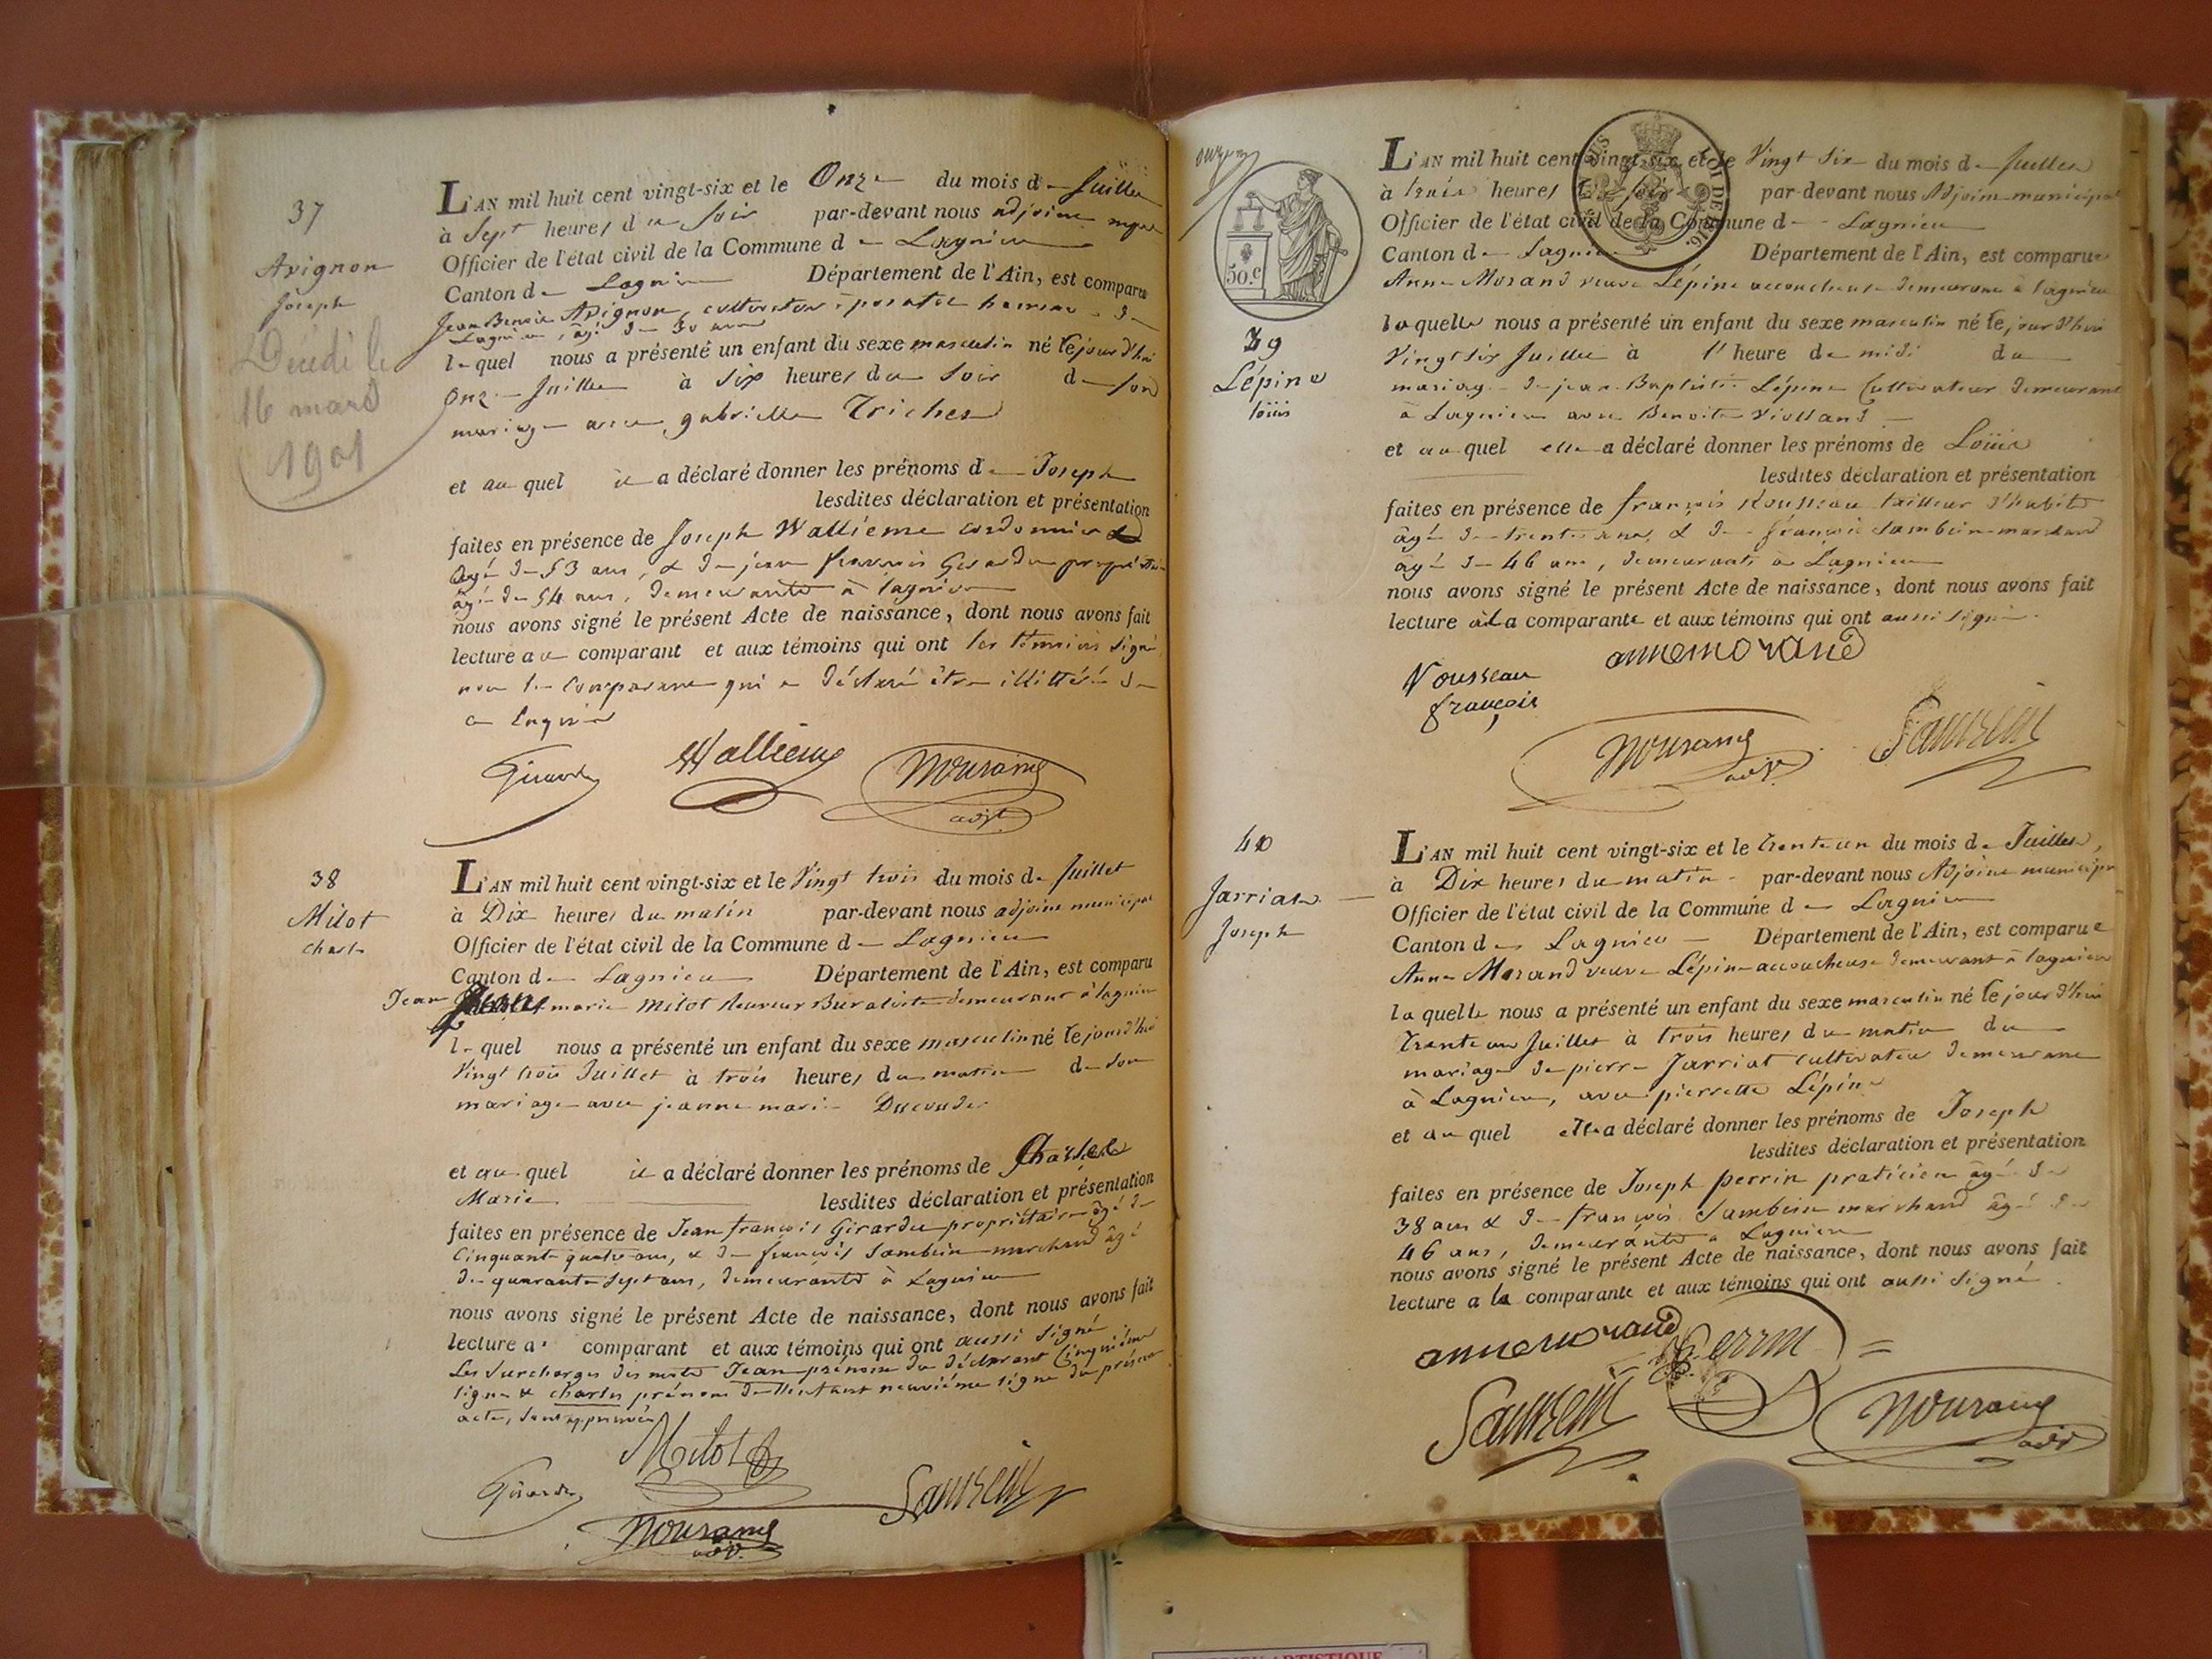 37
Avignon
Joseph
Décédé le
16 mars
1901
L'AN mil huit cent vingt-six et le Onze du mois de Juillet
à Sept heures du Soir par-devant nous adjoint
Officier de l'état civil de la Commune de Lagnieu
Canton de Lagnieu Département de l'Ain, est comparu
Jean Benoit Avignon, cultivateur hameau de
Lagnieu, âgé de 30 ans
lequel nous a présenté un enfant du sexe masculin né le jourd'hui
Onze Juillet à Six heures du Soir de son
mariage avec gabrielle Triches
et au quel il a déclaré donner les prénoms de Joseph
lesdites déclaration et présentation
faites en présence de Joseph Wallième cordonnier
âgé de 53 ans, & de jean francois Girardu propriétaire
âgé de 54 ans, demeurants à lagnieu
nous avons signé le présent Acte de naissance, dont nous avons fait
lecture au comparant et aux témoins qui ont les témoins signé
non le comparant qui a déclaré être illittéré de
ce enquis
Girardu Wallième
adjt
38
Milot
Charle
L'AN mil huit cent vingt-six et le Vingt trois du mois de Juillet
à Dix heures du matin par-devant nous adjoint municipal
Officier de l'état civil de la Commune de Lagnieu
Canton de Lagnieu Département de l'Ain, est comparu
Jean marie Milot Buraliste demeurant à lagnieu
lequel nous a présenté un enfant du sexe masculin né le jourd'hui
Vingt trois Juillet à trois heures du matin de son
mariage avec jeanne marie
et au quel il a déclaré donner les prénoms de Charles
Marie lesdites déclaration et présentation
faites en présence de Jean françois Girardu propriétaire âgé de
Cinquante quatre ans, & de françois Sambein marchand âgé
de quarante Sept ans, demeurants à Lagnieu
nous avons signé le présent Acte de naissance, dont nous avons fait
lecture au comparant et aux témoins qui ont aussi signé
Les Surcharges des mots Jean prénom du déclarant Cinquième
ligne & charles prénom de l'enfant neuvième ligne du présent
acte, sont approuvées
Milot
Girardu
39
Lépine
loüis
50.c
L'AN mil huit cent vingt-six et le Vingt Six du mois de Juillet
à trois heures du soir par-devant nous Adjoint municipal
Officier de l'état civil de la Commune de Lagnieu
Canton de Lagnieu Département de l'Ain, est comparue
Anne Morand veuve Lépine accoucheuse demeurant à lagnieu
laquelle nous a présenté un enfant du sexe masculin né le jourd'hui
Vingt Six Juillet à l'heure de midi du
mariage de jean Baptiste Lépine Cultivateur demeurant
à Lagnieu avec Benoite Violland
et au quel elle a déclaré donner les prénoms de Loüis
lesdites déclaration et présentation
faites en présence de françois Rousseau tailleur d'habits
âgé de trente ans, & de françois Sambein marchand
âgé de 46 ans, demeurants à Lagnieu
nous avons signé le présent Acte de naissance, dont nous avons fait
lecture à la comparante et aux témoins qui ont aussi signé
anne morand
Rousseau
françois
40
Jarriat
Joseph
L'AN mil huit cent vingt-six et le trente un du mois de Juillet,
à Dix heures du matin par-devant nous Adjoint municipal
Officier de l'état civil de la Commune de Lagnieu
Canton de Lagnieu Département de l'Ain, est comparue
Anne Morand veuve Lépine accoucheuse demeurant à lagnieu
laquelle nous a présenté un enfant du sexe masculin né le jourd'hui
trente un Juillet à trois heures du matin du
mariage de pierre Jarriat cultivateur demeurant
à Lagnieu, avec pierrette Lépine
et au quel elle a déclaré donner les prénoms de Joseph
lesdites déclaration et présentation
faites en présence de Joseph perrin praticien âgé de
38 ans & de françois Sambein marchand âgé de
46 ans, demeurants à Lagnieu
nous avons signé le présent Acte de naissance, dont nous avons fait
lecture a la comparante et aux témoins qui ont aussi signé
anne morand Perrin